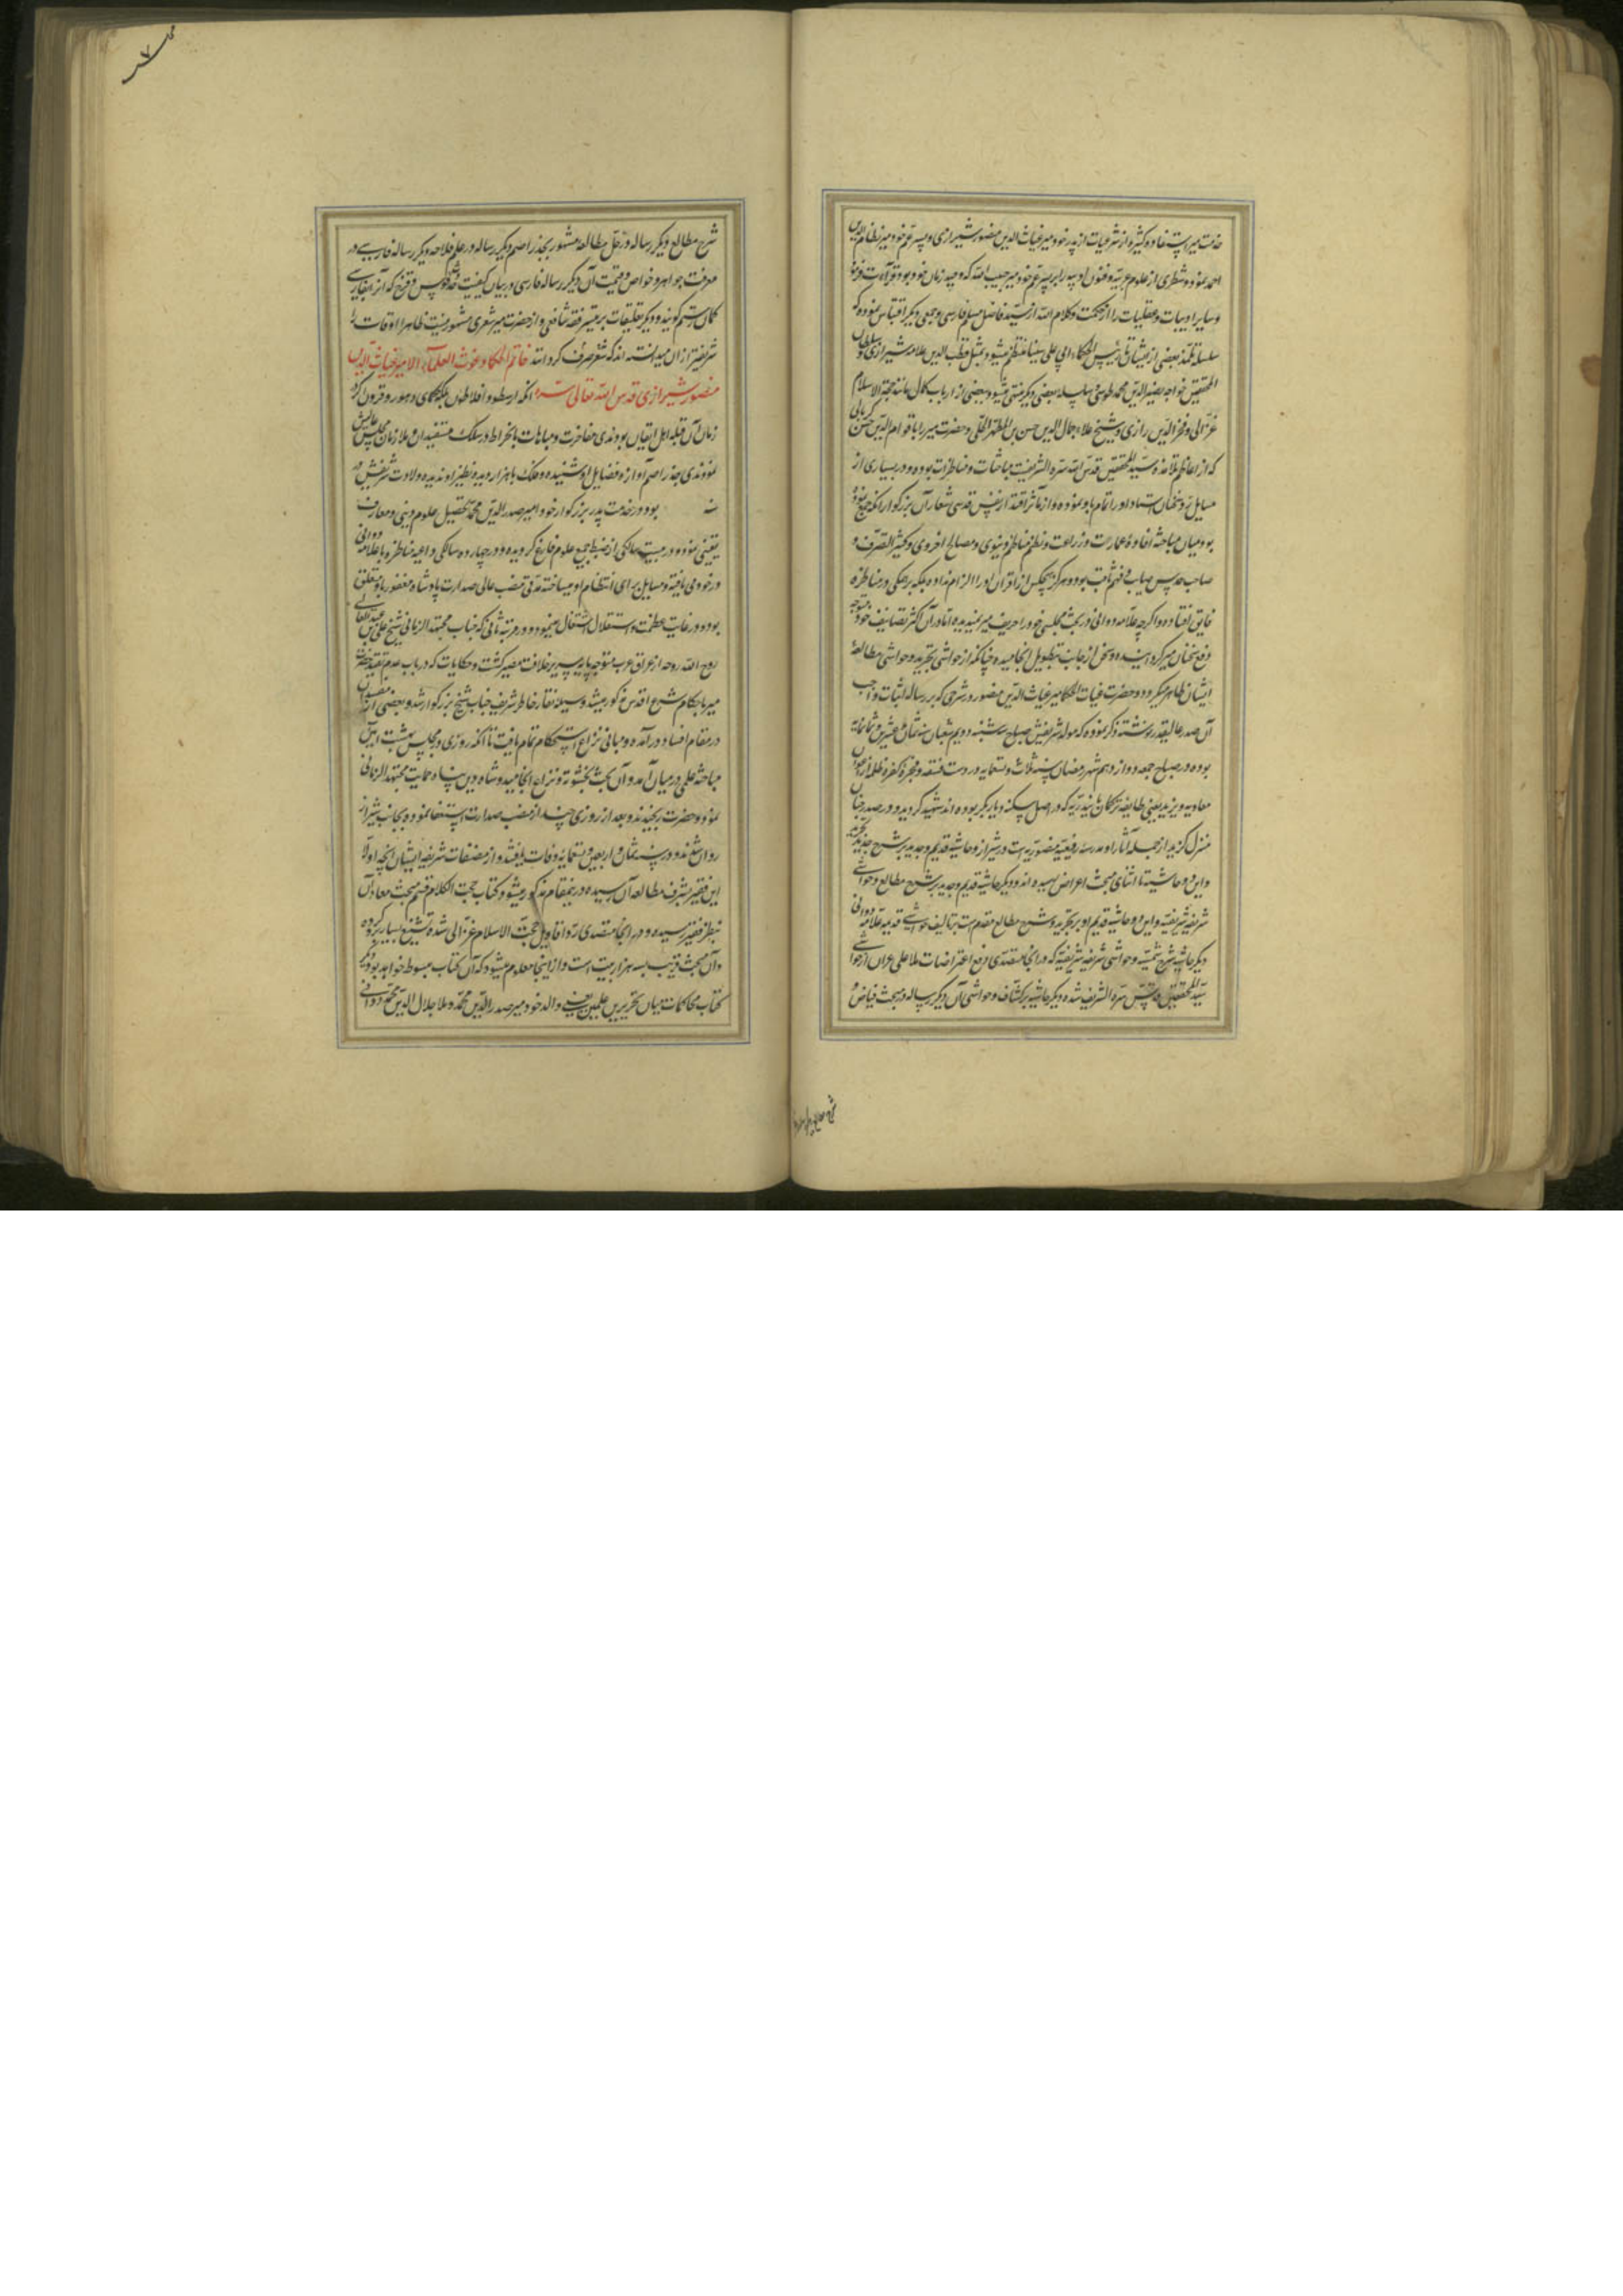 خدمت میر استفاده و کثیر از شرعیات از پدر خود میر غیاث الدین منصور شیرازی و پسر عم خود میر نظام الدین
احمد نموده و شطری از علوم عربیه و فنون ادبیه را بر پسر عم خود میر حبیب الله که وحید زمان خود بود قراءت فرموده
و سایر ادبیات و عقلیات را از حکمت و کلام الله از سید فاضل مسلم فارسی و جمعی دیگر اقتباس نموده که
سلسله تلمذ بعضی از ایشان تا رئیس الحکماء ابی علی سینا منتظم میشود بمثل قطب الدین علامه شیرازی و سلطان
المحققین خواجه نصیر الدین محمد طوسی و سلسله بعضی دیگر منتهی میشود ببعضی از ارباب کمال مانند حجة الاسلام
غزالی و فخر الدین رازی و شیخ علاء جمال الدین حسن بن المطهر الحلی و حضرت میر را با قوام الدین حسن کربالی
که از اعاظم تلامذه سید المحققین قدس الله سره الشریفست مباحثات و مناظرات بوده و در بسیاری از
مسایل رد سخنان استاد او را تمام باو نموده و از مآثر اقتدار نفس قدسی شعار آن بزرگوار آنکه جمع نموده
بود میان مباحثه افاده و عمارت و زراعت و نظم مناظم دنیوی و مصالح اخروی و کثیر التصرف و
صاحب حدس صایب و فهم ثاقب بود و هرگز هیچکس از اقران او را الزام نداده بلکه بر همگی در مناظره
فایق افتاده و اگرچه علامه دوانی در بحث مجلسی خود را حریف میر نمیدیده اما در آن اکثر تصانیف خود متوجه
دفع سخنان میر گردانیده و سخن از جانبین بتطویل انجامیده چنانکه از حواشی تجرید و حواشی مطالع
ایشان ظاهر میگردد و حضرت غیاث الحکما میر غیاث الدین منصور در شرحی که بر رساله اثبات واجب
آن صدر عالیقدر نوشته ذکر نموده که مولد شریفش صباح سه شنبه دویم شعبان سنه ثمان و عشرین و ثمانمائة
بوده در صباح جمعه دوازدهم شهر رمضان سنه ثلاث و تسعمایه در دست فسقه و فجره کفره ظلمه از اعوان
معاویه و یزید یعنی طایفه ترکمان بایندریه که در اصل سکنه دیار بکر بوده اند شهید گردید و در صدر جنان
منزل گزید از جمله آثار او مدرسه رفیعه منصوریه است در شیراز و حاشیه قدیم و جدید بر شرح جدید تجرید
و این دو حاشیه تا اثنای مبحث اعراض رسیده اند و دیگر حاشیه قدیم و جدید بر شرح مطالع و حواشی
شریفه شریفیه و این دو حاشیه قدیم او بر تجرید و شرح مطالع مقدم ست بر تالیف حواشی قدیمه علامه دوانی
دیگر حاشیه شرح شمسیه و حواشی شریفه شریفیه که در آنجا متصدی دفع اعتراضات ملا علی عران از حواشی
سید المحققین قدس سره الشریف شده دیگر حاشیه بر کشاف و حواشی آن دیگر رساله در مبحث فیاض و
شرح مطالع و دیگر رساله در
شرح مطالع و دیگر رساله در حل مطالعه مشهور بجذر اصم دیگر رساله در علم فلاحه و دیگر رساله فارسی در
معرفت جواهر و خواص و قیمت آن و دیگر رساله فارسی در بیان کیفیت حدوث قوس قزح که آنرا بفارسی
کمان رستم گویند و دیگر تعلیقات بر تیسیر فقه شافعی و از حضرت میر شعری مشهور نیست ظاهرا اوقات را
شریفتر از آن میدانسته اند که بشعر صرف گردانند خاتم الحکما و غوث العلماء الامیر غیاث الدین
منصور شیرازی قدس الله تعالی سره آنکه ارسطو و افلاطون بلکه حکمای دهور و قرون اگر در
زمان آن قبله اهل ایقان بودندی مفاخرت و مباهات بانخراط در سلک مستفیدان و ملازمان مجلس عالیش
نمودندی جذر اصم آوازه فضایل او شنیده و فلک با هزار دیده نظیر او ندیده ولادت شریفش در
سنه بود در خدمت پدر بزرگوار خود امیر صدر الدین محمد تحصیل علوم دینی و معارف
یقینی نموده و در بیست سالگی از ضبط جمیع علوم فارغ گردیده و در چهارده سالگی داعیه مناظره با علامه دوانی
در خود می یافته و مسایل برای انتظام او میساخته مدتی منصب عالی صدارت پادشاه مغفور باو متعلق
بوده و در غایت عظمت و استقلال اشتغال مینمود و در مرتبه ثانی که جناب مجتهد الزمانی شیخ علی بن عبد العالی
روح الله روحه از عراق عرب متوجه پایه سریر خلافت مصیر گشت و حکایات که در باب عدم تقید حضرت
میر باحکام شرع اقدس مذکور میشد وسیله نقار خاطر شریف جناب شیخ بزرگوار شد و بعضی از مفسدان
در مقام افساد در آمده و مبانی نزاع استحکام تمام یافت تا آنکه روزی در مجلس بهشت آیین
مباحثه علمی در میان آمد و آن بحث بخشونت و نزاع انجامید و شاه دین پناه حمایت مجتهد الزمانی
نمود و حضرت رنجیدند و بعد از روزی چند از منصب صدارت استعفا نموده بجانب شیراز
روان شدند و در سنه ثمان و اربعین و تسعمایه وفات یافتند و از مصنفات شریفه ایشان آنچه اولا
این فقیر بشرف مطالعه آن رسیده در اینمقام مذکور میشود کتاب حجت الکلام قسم مبحث معاد آن
بنظر فقیر رسیده و در آنجا متصدی رد اقاویل حجت الاسلام غزالی شده تشنیع بسیار برو کرده
و آن مبحث قریب بسه هزار بیت است و از اینجا معلوم میشود که آن کتاب مبسوط خواهد بود دیگر
کتاب محاکمات میان تحریرین علمین یعنی والد خود میر صدر الدین محمد و ملا جلال الدین محمد دوانی